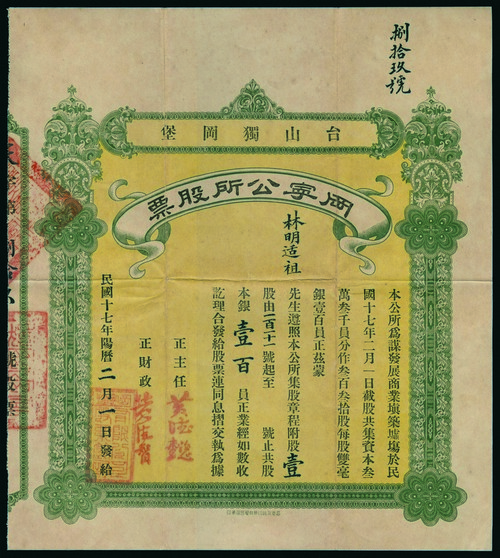 捌拾玖號
台山獨岡堡
岡寧公所股票
林明适祖
本公所為謀發展商業塡築墟場於民
國十七年二月一日截股共集資本叁
萬叁千員分作叁百叁拾股每股雙毫
銀壹百員正茲蒙
先生遵照本公所集股章程附股壹
股由一百十一號起至 號止共股
本銀壹百員正業經如數收
訖理合發給股票連同息摺交執為據
正主任
正財政
民國十七年陽曆二月一日發給